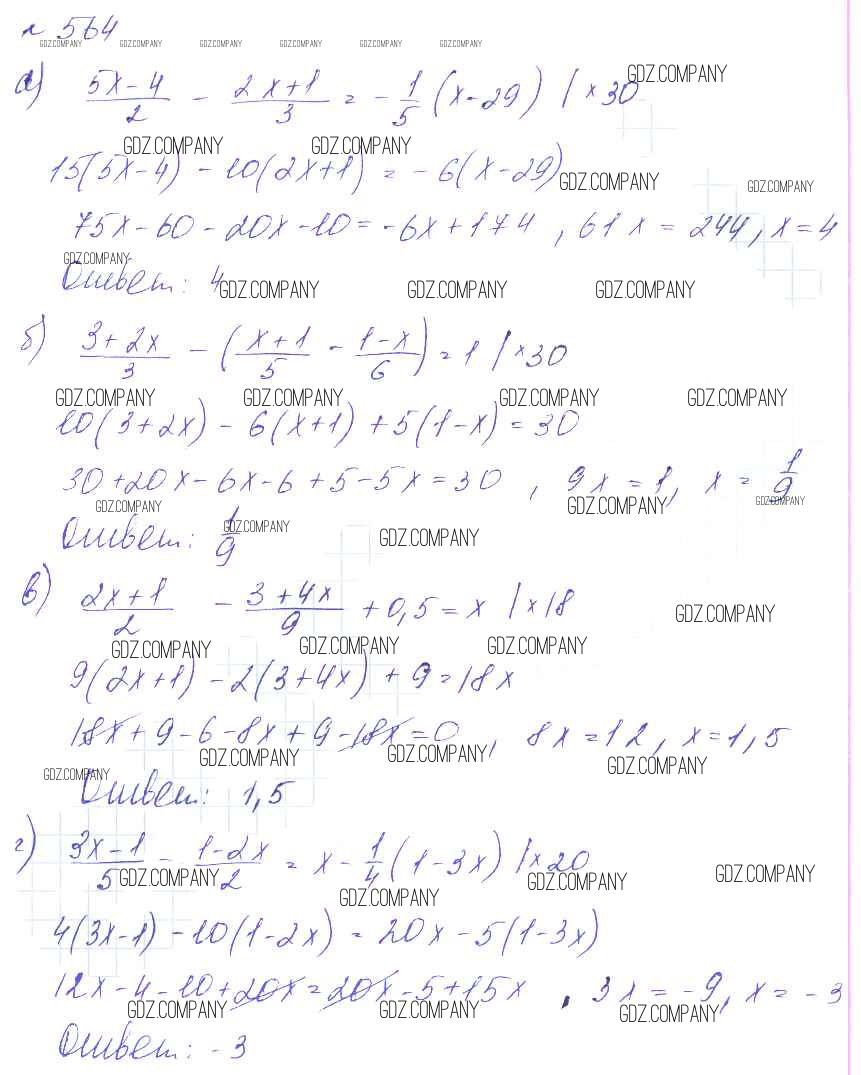 № 564
GDZ.COMPANY GDZ.COMPANY GDZ.COMPANY GDZ.COMPANY GDZ.COMPANY GDZ.COMPANY
а) (5x-4)/2 - (2x+1)/3 = -1/5 (x-29) | ×30
GDZ.COMPANY
GDZ.COMPANY GDZ.COMPANY
15(5x-4) - 10(2x+1) = -6(x-29)
GDZ.COMPANY GDZ.COMPANY
75x-60-20x-10=-6x+174, 61x=244, x=4
GDZ.COMPANY
Ответ: 4
GDZ.COMPANY GDZ.COMPANY GDZ.COMPANY
б) (3+2x)/3 - ((x+1)/5 - (1-x)/6) = 1 | ×30
GDZ.COMPANY GDZ.COMPANY GDZ.COMPANY GDZ.COMPANY
10(3+2x) - 6(x+1) + 5(1-x) = 30
30+20x-6x-6+5-5x=30, 9x=1, x=1/9
GDZ.COMPANY GDZ.COMPANY GDZ.COMPANY
Ответ: 1/9
GDZ.COMPANY GDZ.COMPANY
в) (2x+1)/2 - (3+4x)/9 + 0,5 = x | ×18
GDZ.COMPANY
GDZ.COMPANY GDZ.COMPANY GDZ.COMPANY
9(2x+1) - 2(3+4x) + 9 = 18x
18x+9-6-8x+9-18x=0, 8x=12, x=1,5
GDZ.COMPANY GDZ.COMPANY GDZ.COMPANY
GDZ.COMPANY
Ответ: 1,5
г) (3x-1)/5 - (1-2x)/2 = x - 1/4 (1-3x) | ×20
GDZ.COMPANY GDZ.COMPANY GDZ.COMPANY GDZ.COMPANY
4(3x-1) - 10(1-2x) = 20x-5(1-3x)
12x-4-10+20x=20x-5+15x, 3x=-9, x=-3
GDZ.COMPANY GDZ.COMPANY GDZ.COMPANY
Ответ: -3